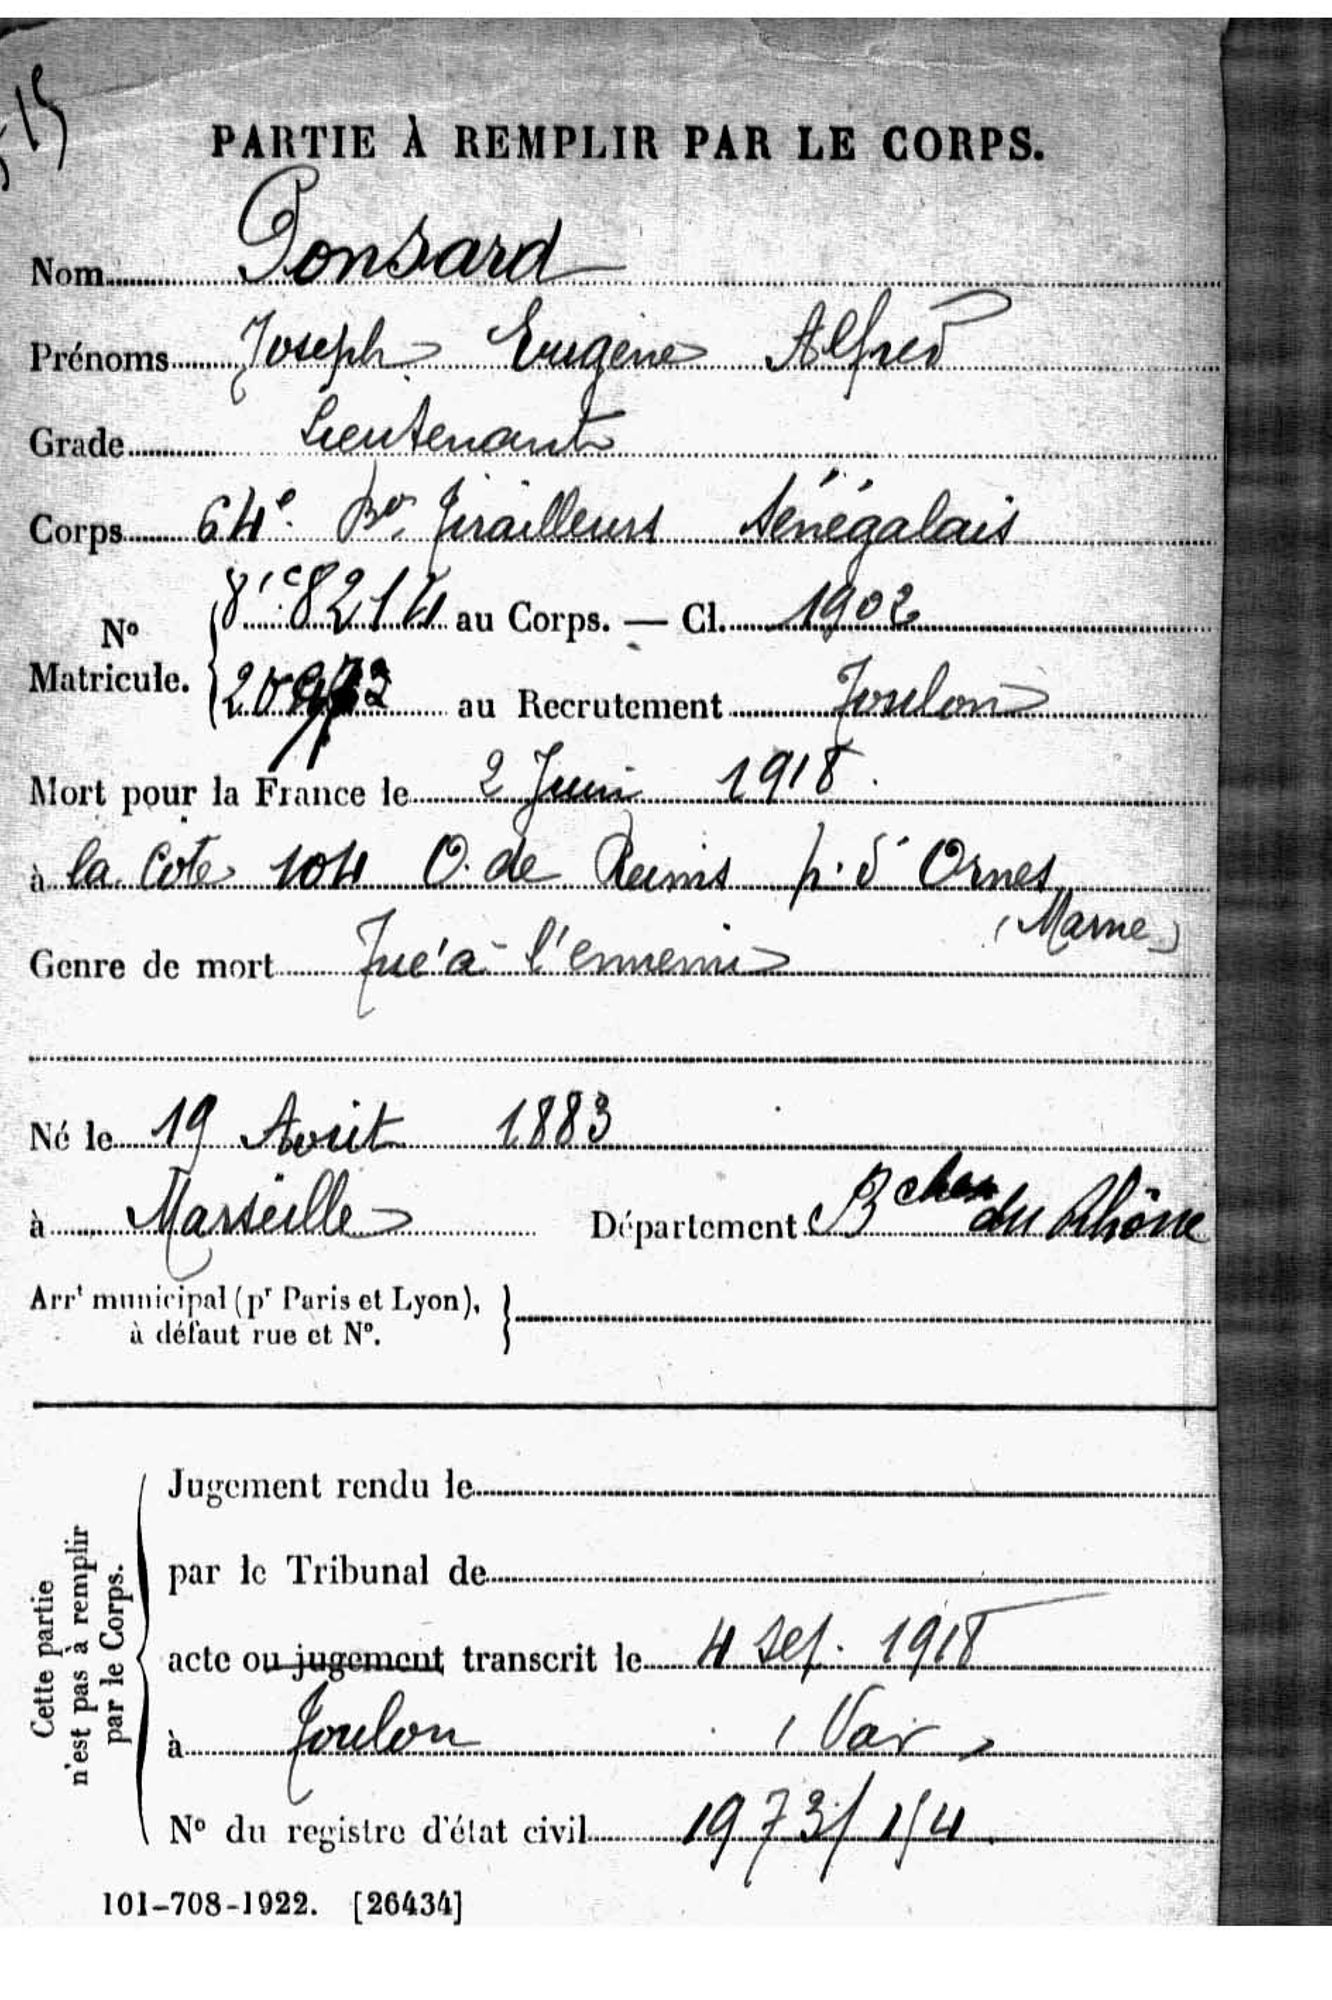 PARTIE À REMPLIR PAR LE CORPS.
Nom Ponsard
Prénoms Joseph Eugène Alfred
Grade Lieutenant
Corps 64e Bon Tirailleurs Sénégalais
8214 au Corps. — Cl. 1902
No Matricule.
au Recrutement Toulon
Mort pour la France le 2 Juin 1918.
à la Cote 104 O. de Reims p. d' Ornes
(Marne)
Genre de mort Tué à l'ennemi
Né le 19 Août 1883
à Marseille Département Bches du Rhône
Arrt municipal (pr Paris et Lyon),
à défaut rue et No.
Cette partie
n'est pas à remplir
par le Corps.
Jugement rendu le
par le Tribunal de
acte ou jugement transcrit le 4 Sep. 1918
à Toulon (Var)
No du registre d'état civil 1973/154
101-708-1922. [26434]